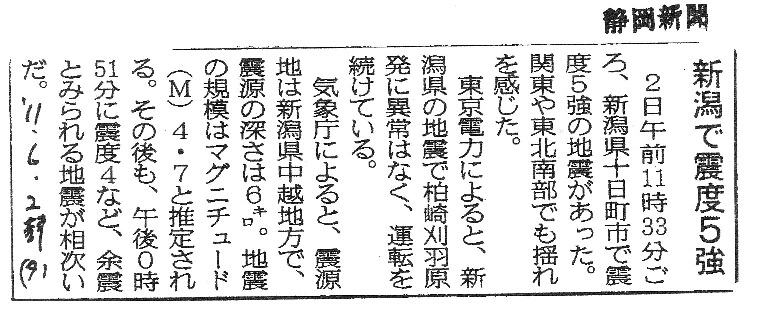 静岡新聞
新潟で震度5強
２日午前11時33分ご
ろ、新潟県十日町市で震
度5強の地震があった。
関東や東北南部でも揺れ
を感じた。
東京電力によると、新
潟県の地震で柏崎刈羽原
発に異常はなく、運転を
続けている。
気象庁によると、震源
地は新潟県中越地方で、
震源の深さは6㌔。地震
の規模はマグニチュード
（M）4・7と推定され
る。その後も、午後0時
51分に震度4など、余震
とみられる地震が相次い
だ。
'11.6.2